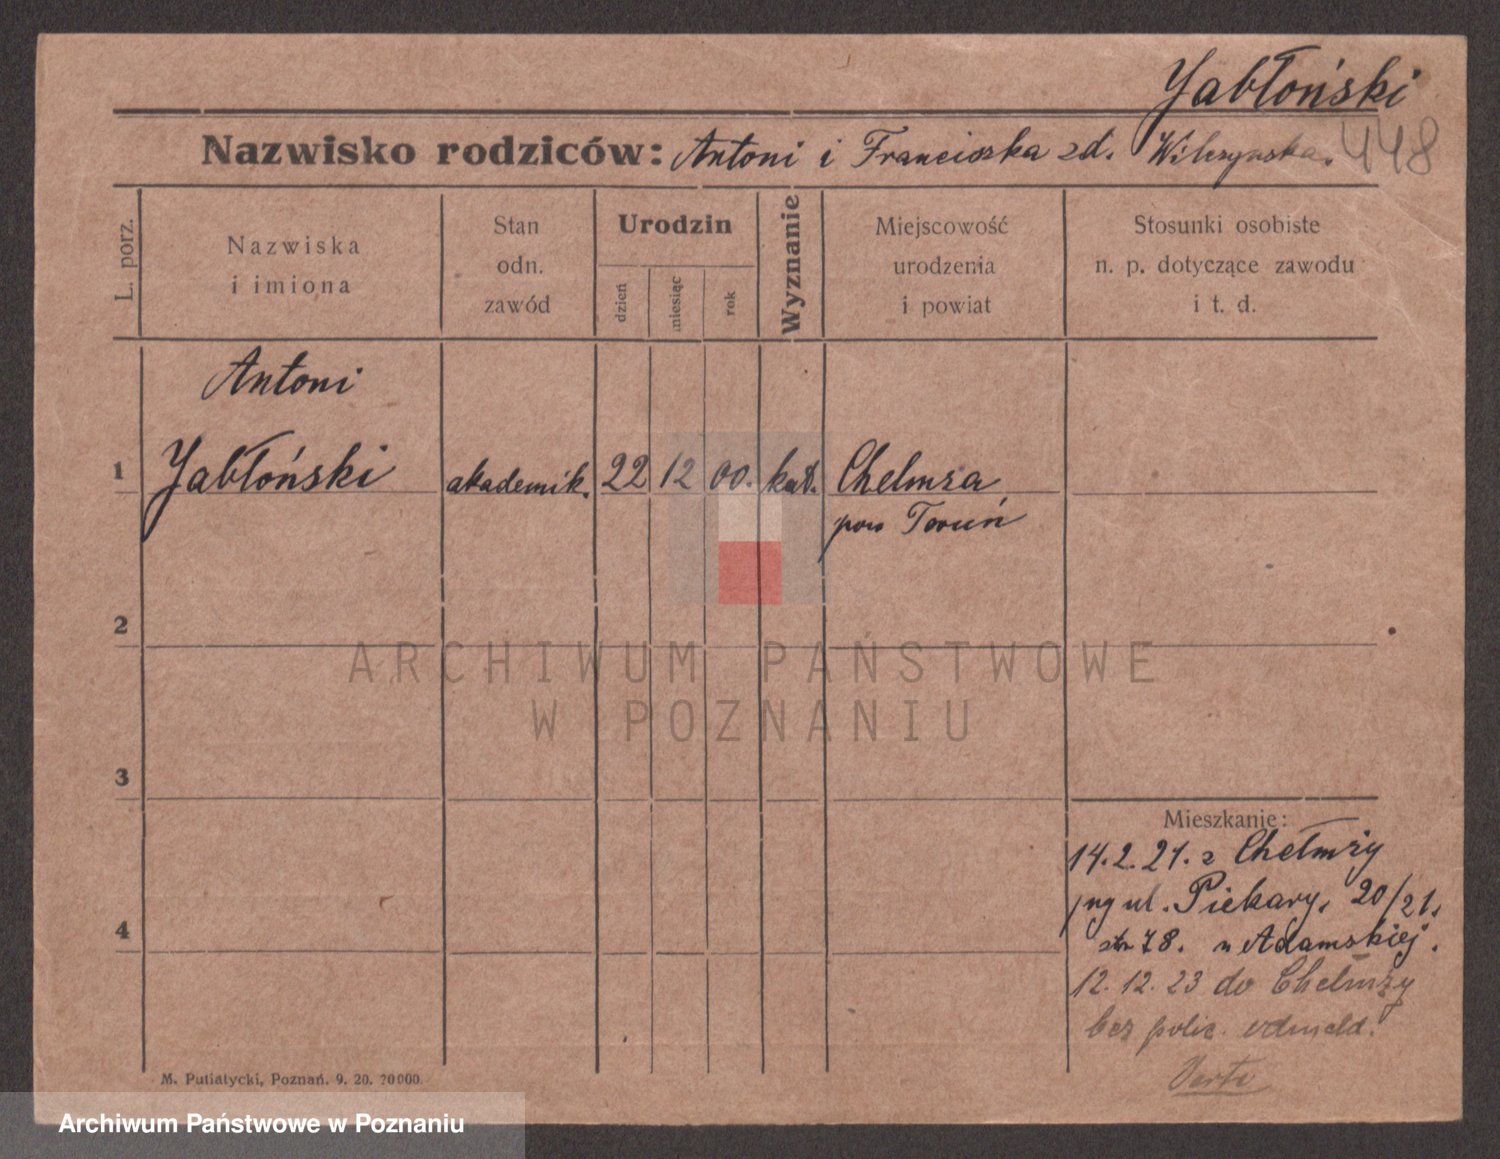 Jabłoński
Nazwisko rodziców: Antoni i Franciszka zd. Wilczyńska.
448
L. porz.
Nazwiska
i imiona
Stan
odn.
zawód
Urodzin
dzień
miesiąc
rok
Wyznanie
Miejscowość
urodzenia
i powiat
Stosunki osobiste
n. p. dotyczące zawodu
i t. d.
Antoni
1 Jabłoński akademik. 22 12 00. kat. Chelmża
pow Toruń
2
ARCHIWUM PAŃSTWOWE
W POZNANIU
3
Mieszkanie:
14.2.21. z Chełmży
ul. Piekary, 20/21,
78. u Adamskiej.
4
12.12.23 do Chełmży
bez polic. odmeld.
Verte
M. Putiatycki, Poznań. 9. 20. 20000.
Archiwum Państwowe w Poznaniu